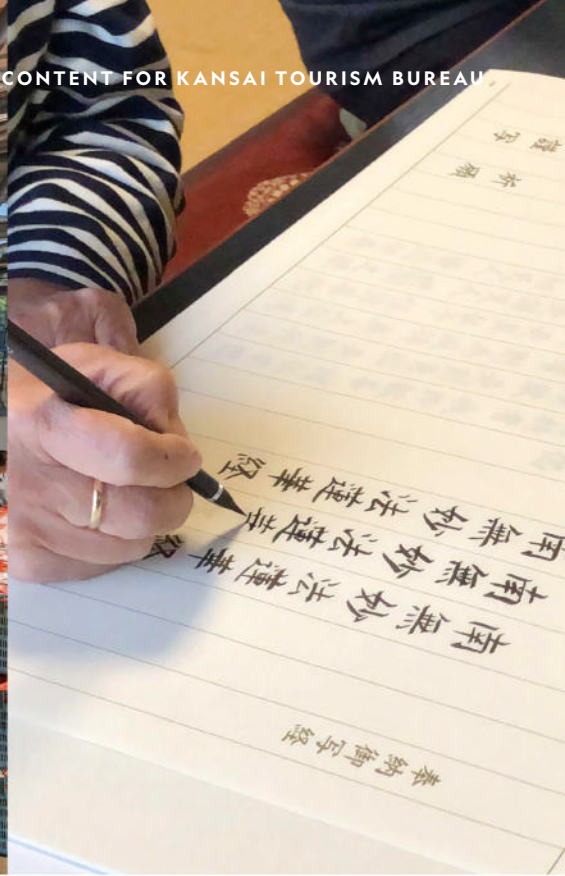 CONTENT FOR KANSAI TOURISM BUREAU
奉納御写経
南無妙法蓮華経
南無妙法蓮
南無妙法蓮華経
祈願
謹写